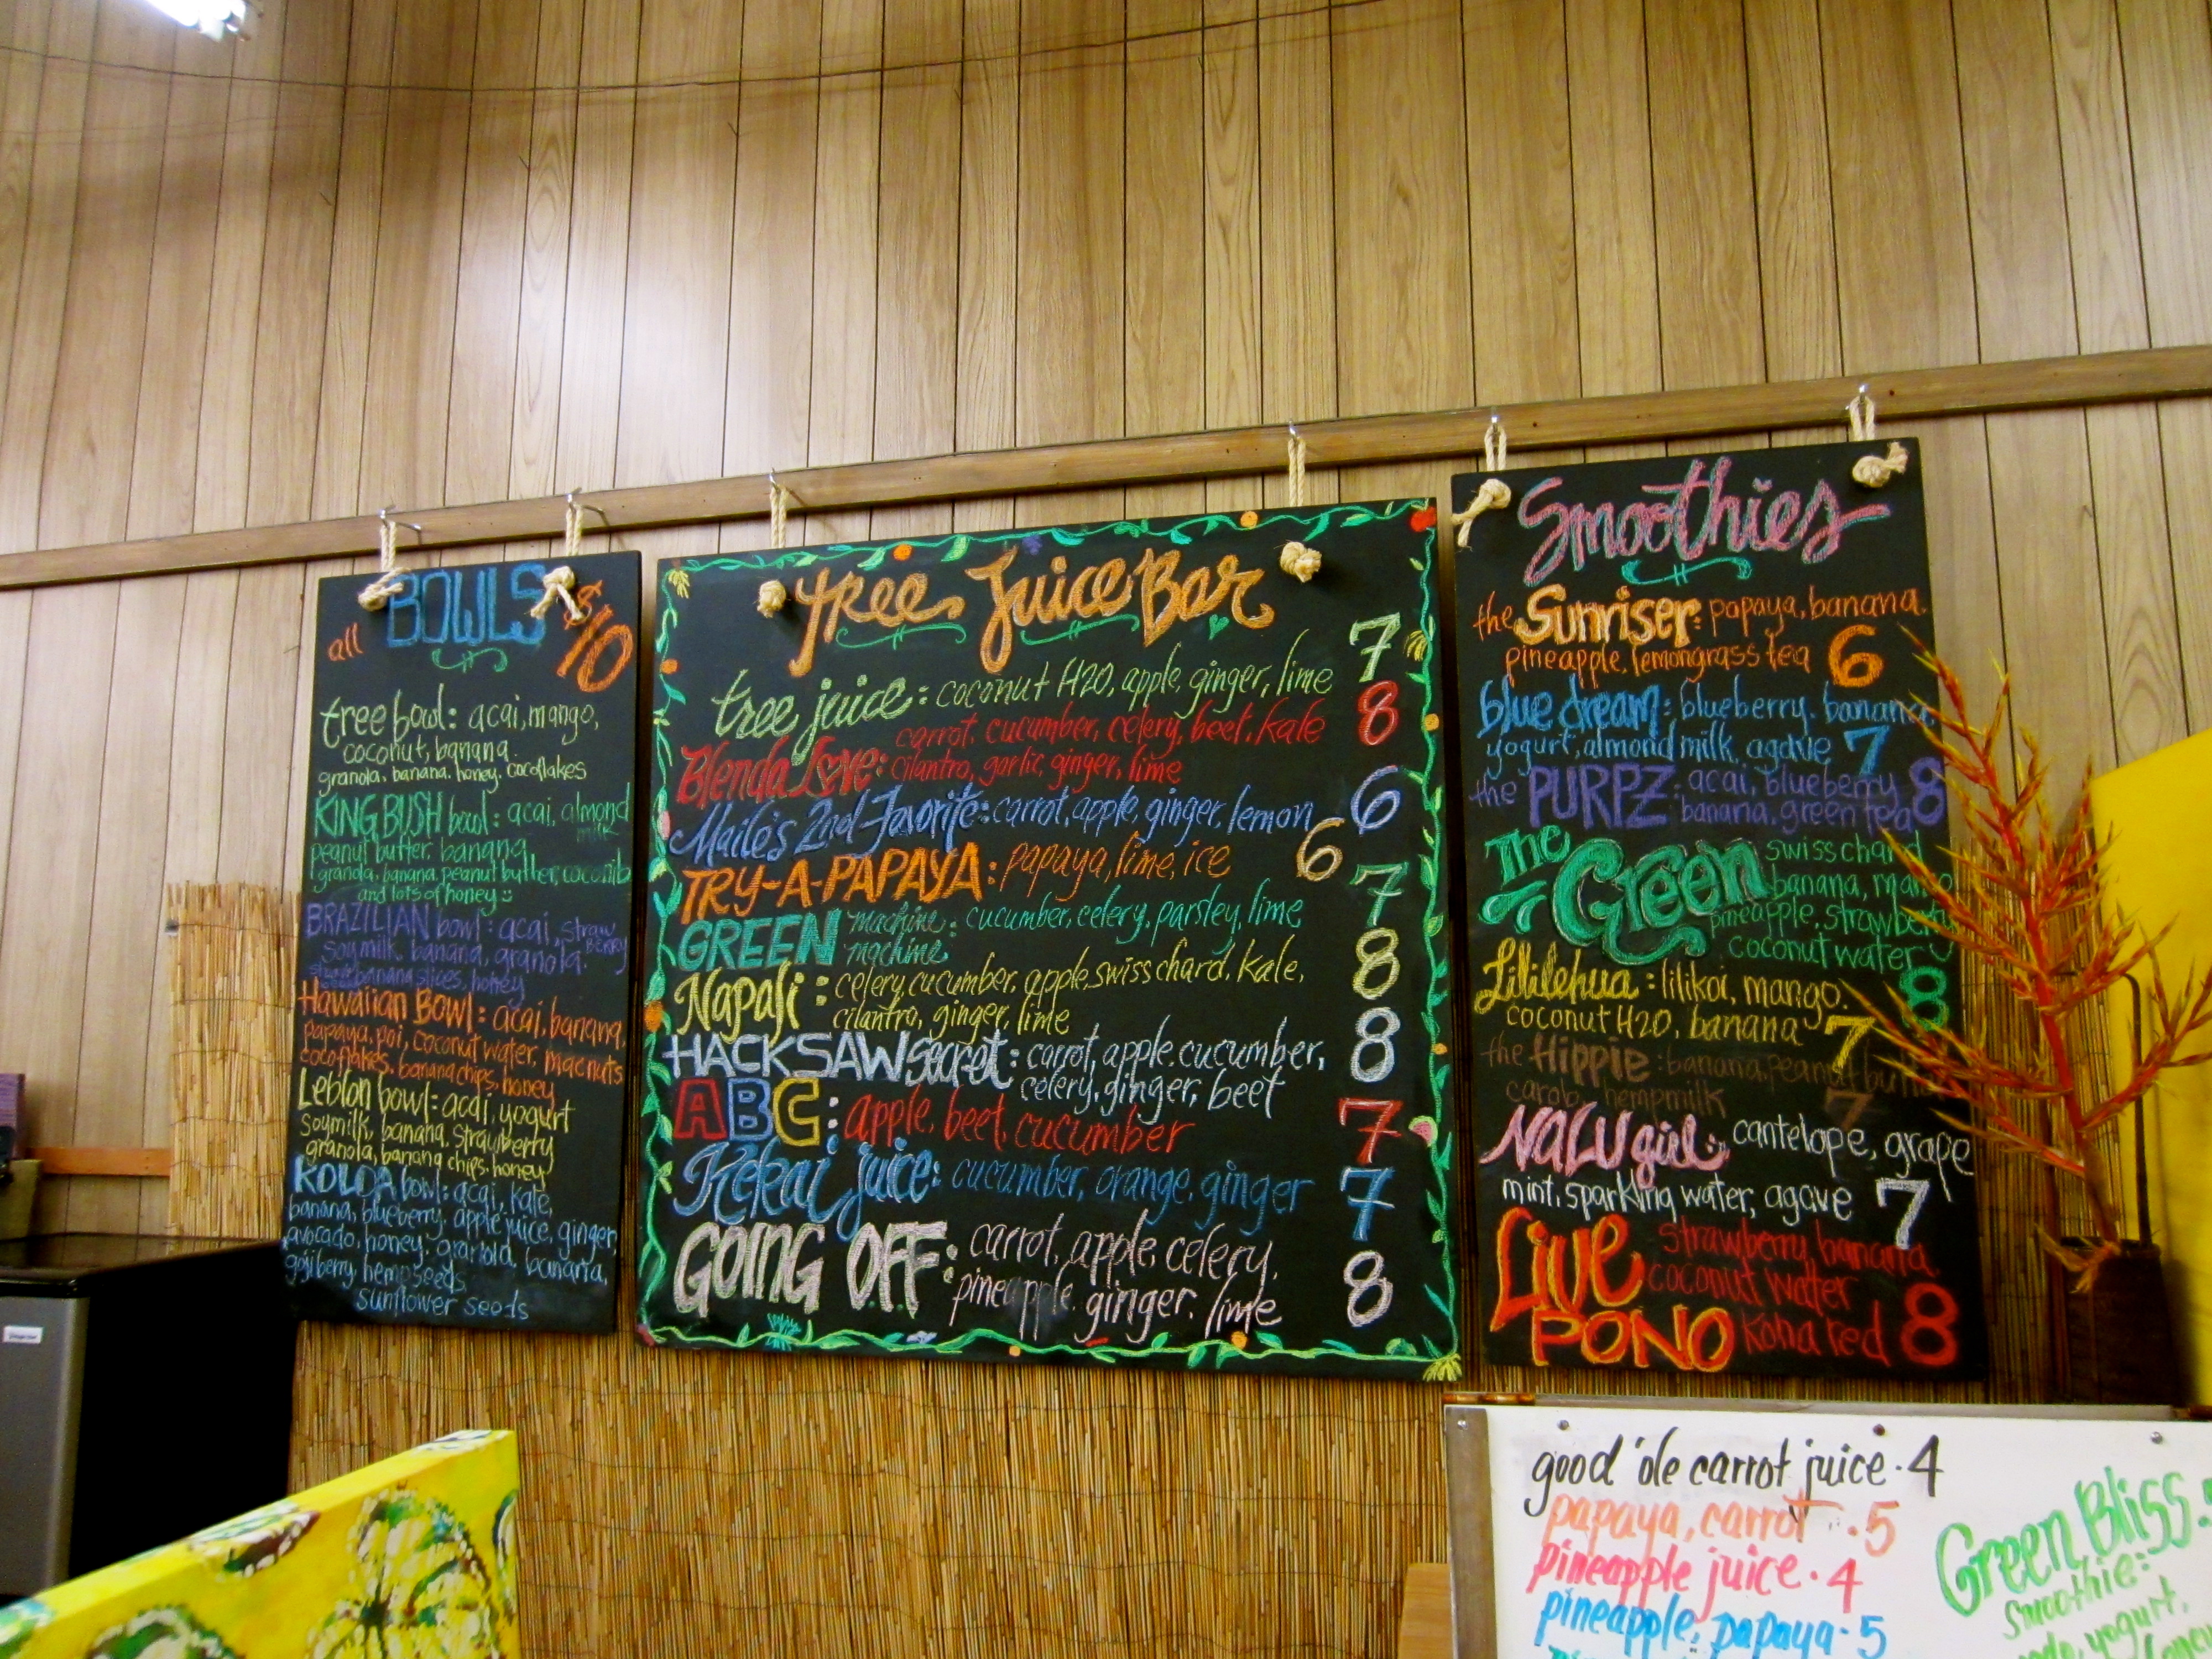 all BOWLS $10
tree bowl: acai, mango,
coconut, banana
granola, banana, honey, cocoflakes
KING BUSH bowl: acai, almond
milk
peanut butter, banana
granola, banana, peanut butter, coconib
and lots of honey :)
BRAZILIAN bowl: acai, straw
BERRY
soymilk, banana, granola,
banana slices, honey
Hawaiian Bowl: acai, banana,
papaya, poi, coconut water, macnuts
cocoflakes, banana chips, honey
Leblon bowl: acai, yogurt
soymilk, banana, strawberry
granola, banana chips, honey
KOLOA bowl: acai, kale,
banana, blueberry, apple juice, ginger,
avocado, honey, granola, banana,
goji berry, hempseeds
sunflower seeds
tree Juice Bar
tree juice: coconut H2O, apple, ginger, lime 7
Blenda Love: carrot, cucumber, celery, beet, kale 8
cilantro, garlic, ginger, lime
Maile's 2nd Favorite: carrot, apple, ginger, lemon 6
TRY-A-PAPAYA: papaya, lime, ice 6
GREEN machine: cucumber, celery, parsley, lime 7
machine
Napali: celery, cucumber, apple, swiss chard, kale, 8
cilantro, ginger, lime
HACKSAW secret: carrot, apple, cucumber, 8
celery, ginger, beet
ABC: apple, beet, cucumber 7
Kekai juice: cucumber, orange, ginger 7
GOING OFF: carrot, apple, celery, 8
pineapple, ginger, lime
Smoothies
the Sunriser: papaya, banana,
pineapple, lemongrass tea 6
blue dream: blueberry, banana,
yogurt, almond milk, agave 7
the PURPZ: acai, blueberry 8
banana, green tea
The Green swiss chard
banana, mango
pineapple, strawberry
coconut water 8
Lililehua: lilikoi, mango,
coconut H2O, banana 7
the Hippie: banana, peanut butter
carob, hempmilk 7
NALU girl: cantelope, grape
mint, sparkling water, agave 7
LIVE PONO strawberry, banana
coconut water
kona red 8
good 'ole carrot juice · 4
papaya, carrot · 5
pineapple juice · 4
pineapple, papaya · 5
Green Bliss
Smoothie:
yogurt,